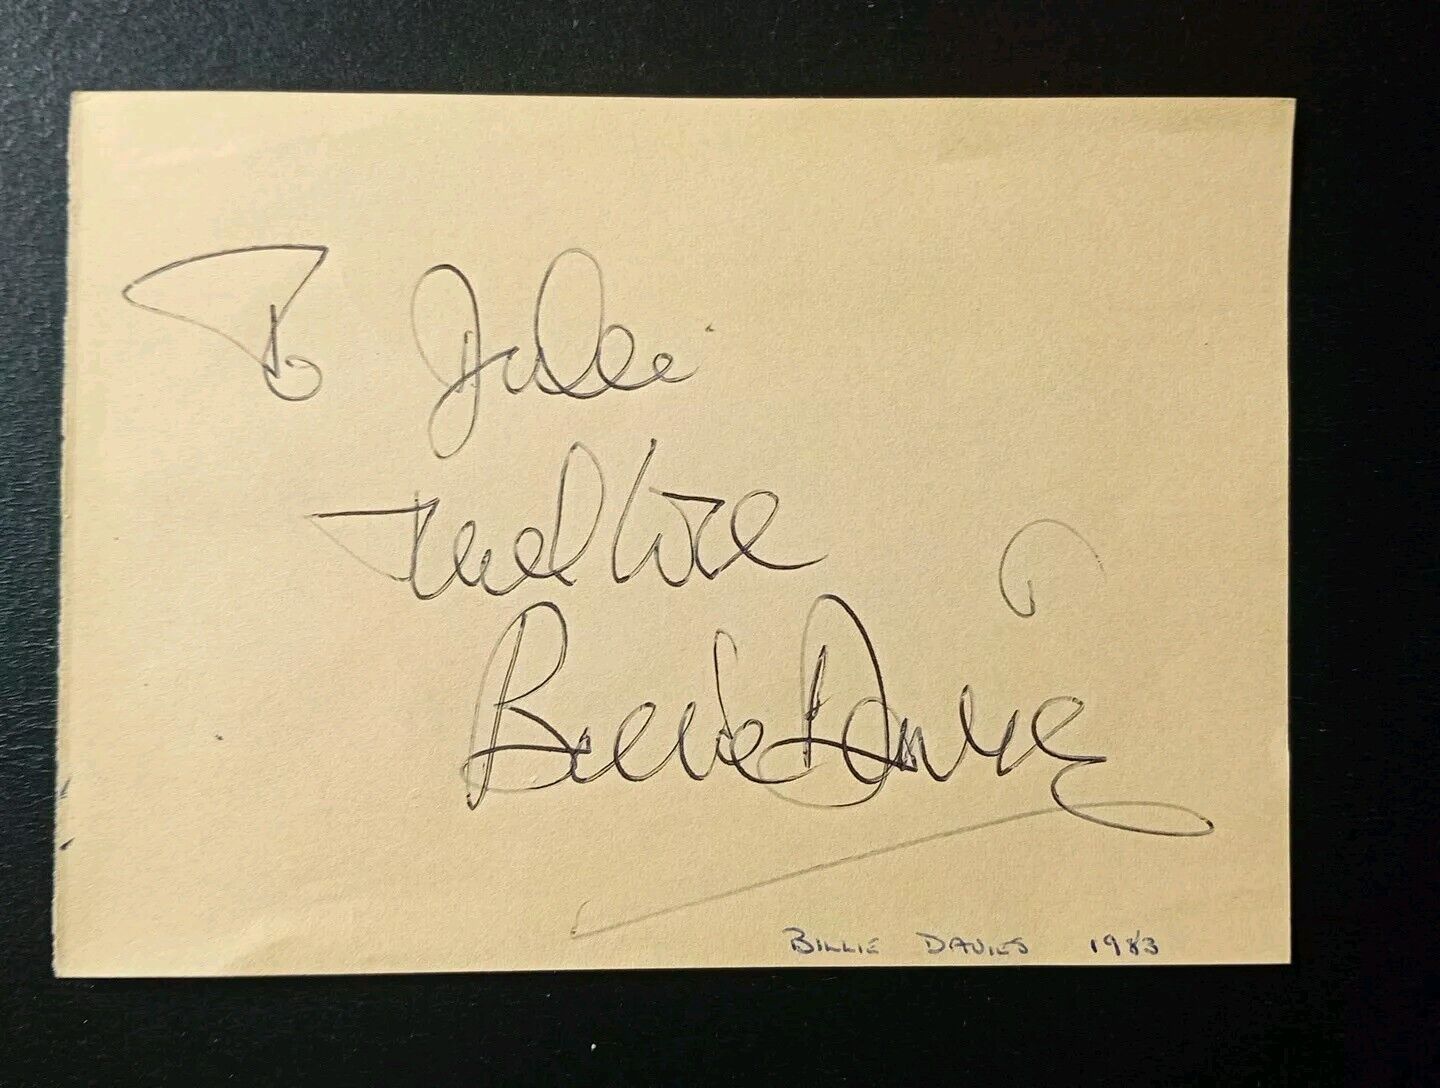 To Julie
Much Love
Billie Davis
BILLIE DAVIES 1983